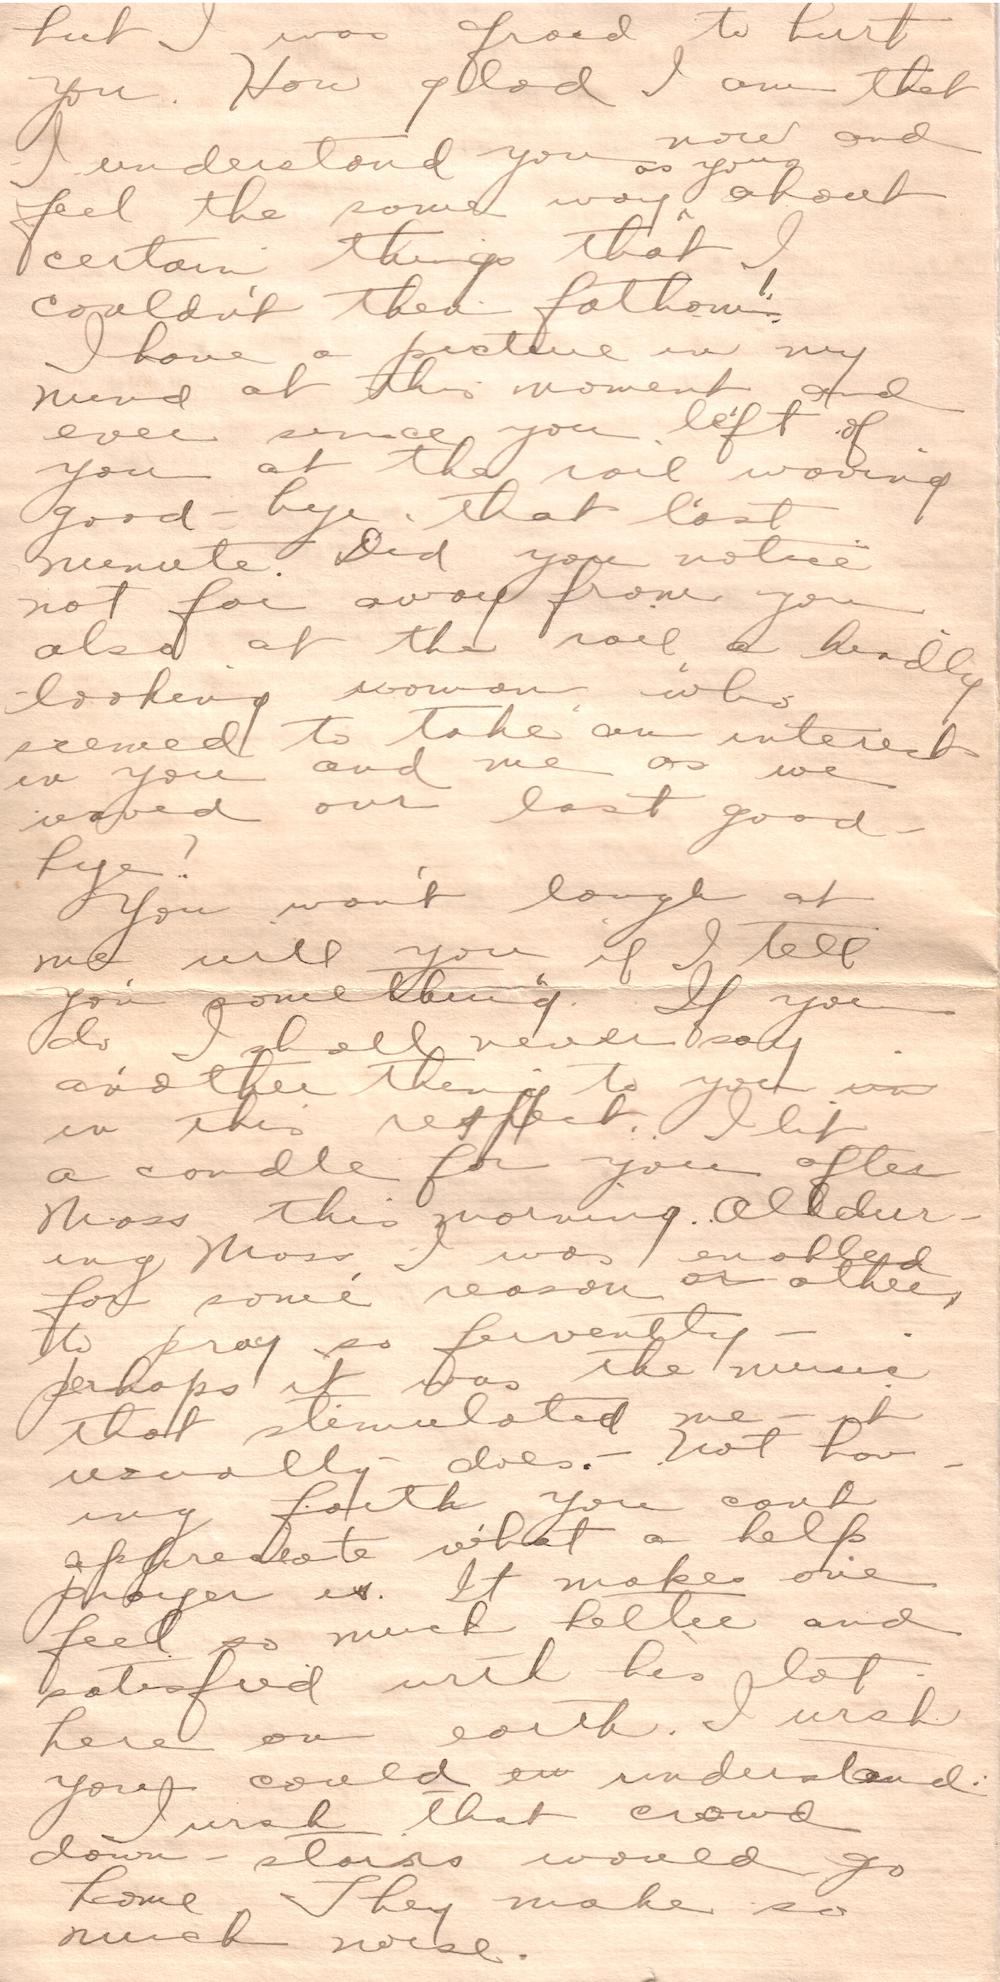 but I was afraid to hurt
you. How glad I am that
I understand you now and
feel the same way as you about
certain things that I
couldn't then fathom!
I have a picture in my
mind at this moment and
ever since you left of
you at the rail waving
good-bye that last
minute. Did you notice
not far away from you
also at the rail a kindly
looking woman who
seemed to take an interest
in you and me as we
waved our last good-
bye?
You won't laugh at
me will you if I tell
you something. If you
do I shall never say
another thing to you in
in this respect. I lit
a candle for you after
Mass this morning. All dur-
ing Mass I was enabled
for some reason or other,
to pray so fervently -
perhaps it was the music
that stimulated me - it
usually does. - Not hav-
ing faith you can't
appreciate what a help
prayer is. It makes one
feel so much better and
satisfied with his lot
here on earth. I wish
you could understand.
I wish that crowd
down-stairs would go
home. They make so
much noise.